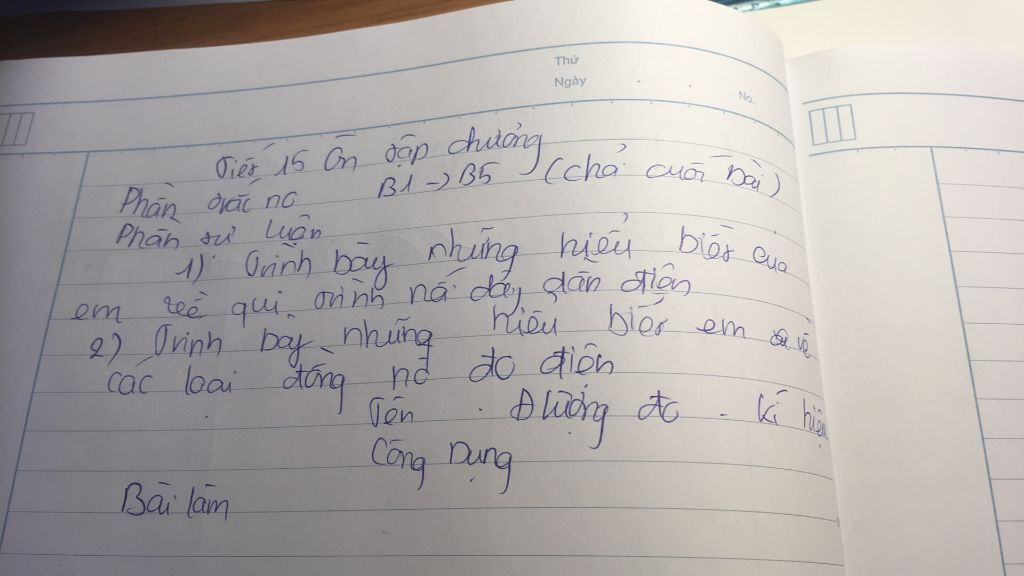 Thứ
Ngày
No.
Tiết 15 Ôn tập chương
Phần trắc no B1 -> B5 (chả cuối bài)
Phần tự luận
1) Trình bày những hiểu biết của
em về qui trình nố dây dẫn điện
2) Trình bày những hiểu biết em về
các loai đồng hồ đo điện
Tên . Đ lượng đo - kí hiệu
Công Dụng
Bài làm